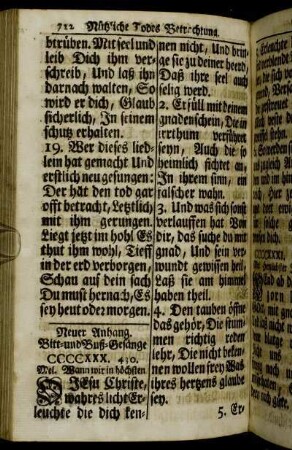 712 Nützliche Todes Betrachtung
btrüben. Mit seel und
leib Dich ihm ver-
schreib, Und laß ihn
darnach walten, So
wird er dich, Glaub
sicherlich, In seinem
schutz erhalten.
19. Wer dieses lied-
lein hat gemacht Und
erstlich neu gesungen:
Der hät den tod gar
offt betracht, Letzlich
mit ihm gerungen.
Liegt jetzt im hohl Es
thut ihm wohl, Tieff
in der erd verborgen,
Schau auf dein sach
Du must hernach, Es
sey heut oder morgen.
Neuer Anhang.
Bitt-und Buß-Gesänge
CCCCXXX. 430.
Mel. Wann wir in höchsten
O JEsu Christe,
wahres licht Er-
leuchte die dich ken-
nen nicht, Und brin-
ge sie zu deiner heerd,
Daß ihre seel auch
selig werd.
2. Erfüll mit deinem
gnadenschein, Die in
irrthum verführet
seyn, Auch die so
heimlich sichtet an,
In ihrem sinn, ein
falscher wahn.
3. Und was sich sonst
verlauffen hat Von
dir, das suche du mit
gnad, Und sein ver-
wundt gewissen heil,
Laß sie am himmel
haben theil.
4. Den tauben öffne
das gehör, Die stum-
men richtig reden
lehr, Die nicht beken-
nen wollen frey Was
ihres hertzens glaube
sey.
5. Er-